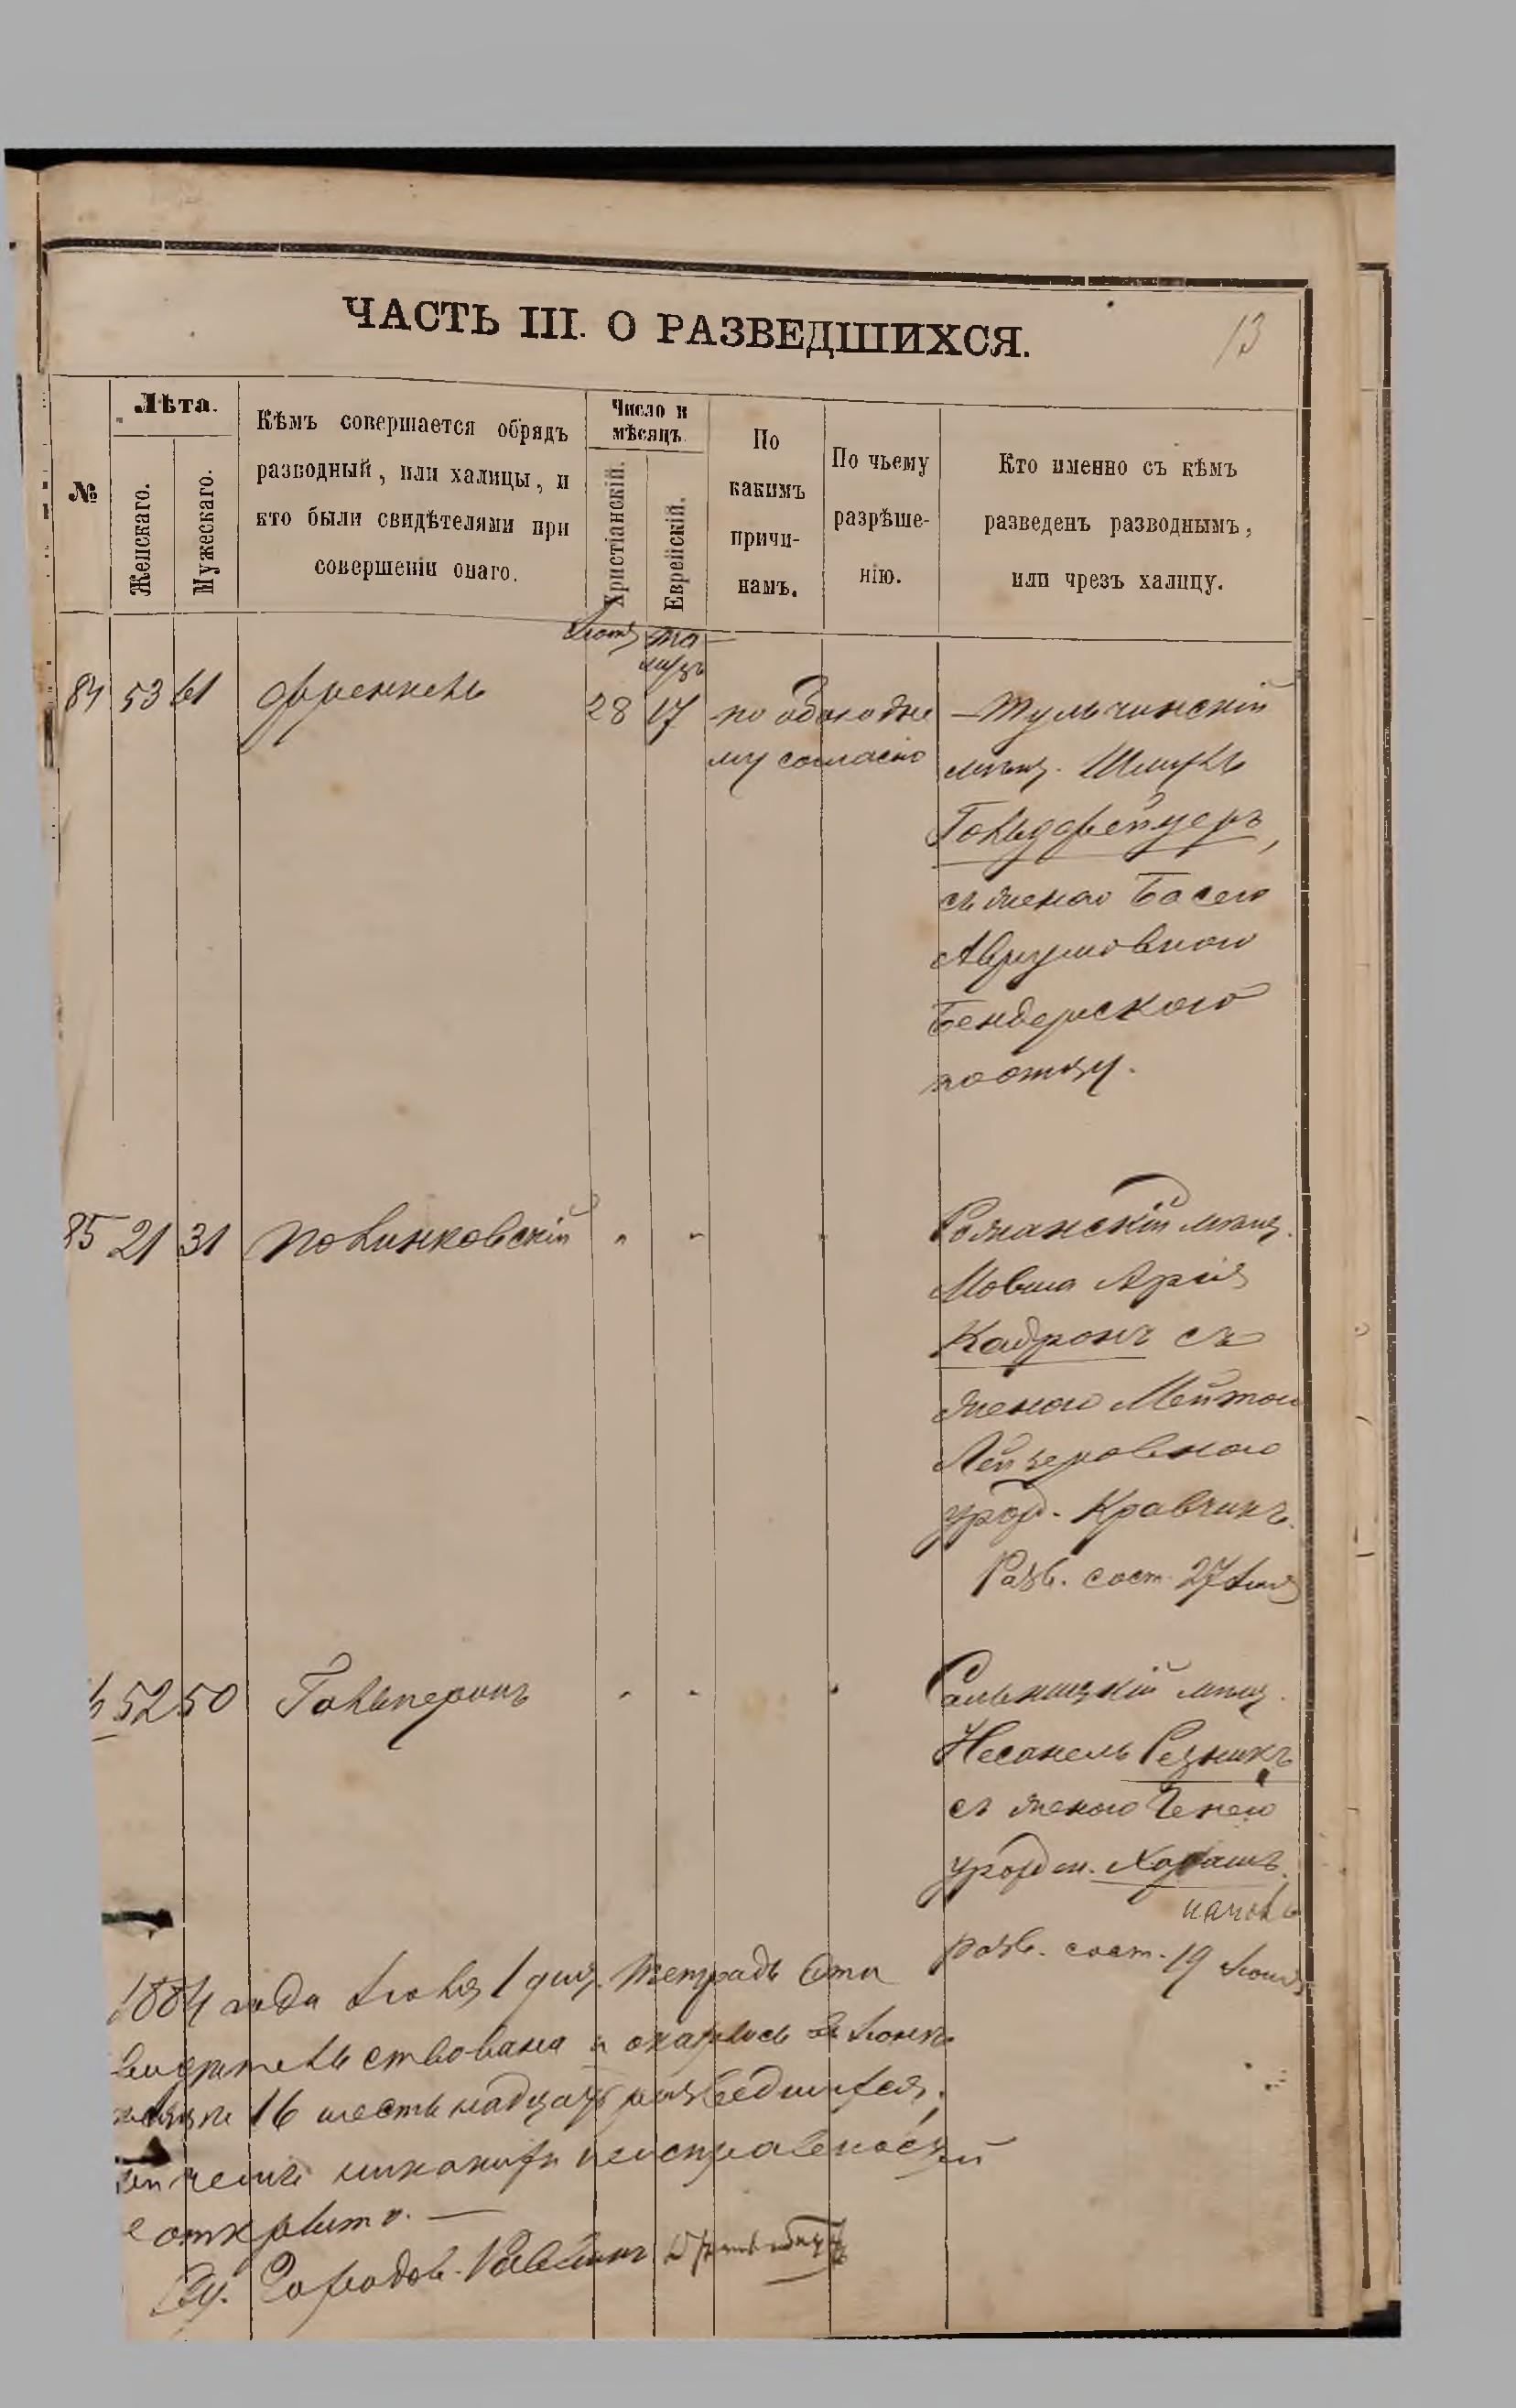 ЧАСТЬ III. О РАЗВЕДШИХСЯ.
13
№
Лѣта.
Женскаго.
Мужескаго.
Кѣмъ совершается обрядъ
разводный, или халицы, и
кто были свидѣтелями при
совершеніи онаго.
Число и
мѣсяцъ.
Христіанскій.
Еврейскій.
По
какимъ
причи-
намъ.
По чьему
разрѣше-
нію.
Кто именно съ кѣмъ
разведенъ разводнымъ,
или чрезъ халицу.
Іюня
Та-
музъ
84 53 61 Френкель 28 17 по обоюдно
му согласію
Тульчинскій
мѣщ. Шмуль
Гольдфейнгеръ,
съ женою Басею
Аврумовною
Бендерскою
по отцу.
85 21 31 Полинковскій " " "
мѣщ.
Мовша Арія
Кадронъ съ
женою Мейтою
Лейзеровною
урож. Кравчикъ.
Разв. сост. 27 Іюня
52 50 Гальперинъ " " "
Сальницкій мѣщ.
Несанель Резникъ
съ женою Генею
урожден. Хараш.
разв. сост. 19 Іюня
1884 года Іюля 1 дня. Тетрадь эта
свидѣтельствована и оказалось въ Іюнѣ
мѣсяцѣ 16 шестьнадцать разведшихся,
причемъ никакихъ неисправностей
не открыто. —
Городов. Раввинъ